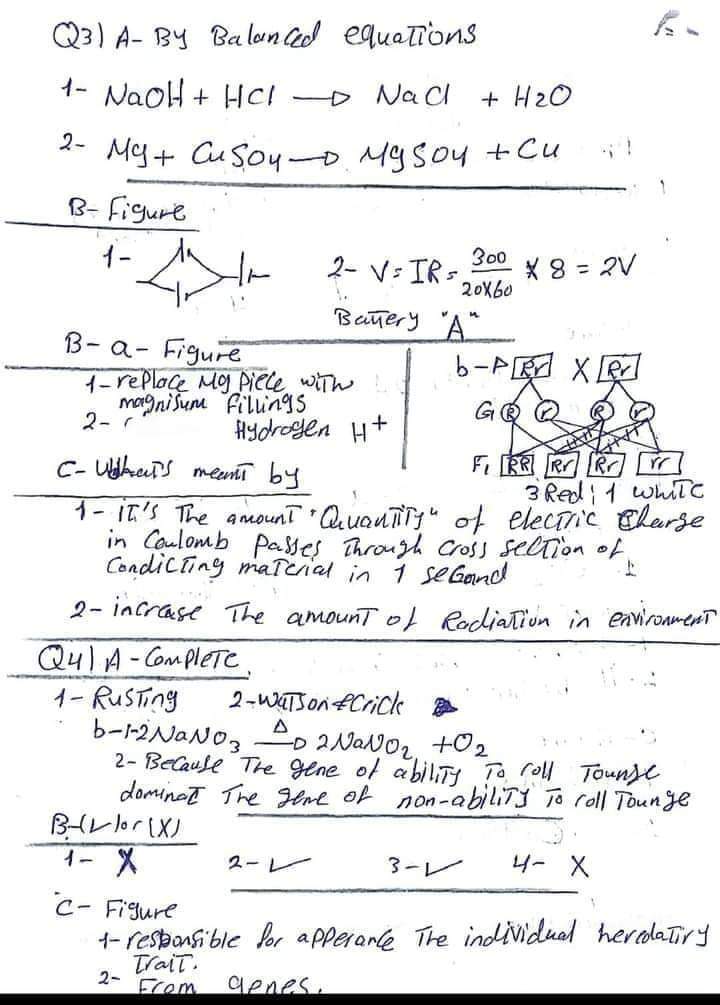 Q3) A- By Balanced equations
1- NaOH + HCl → NaCl + H2O
2- Mg + CuSO4 → MgSO4 + Cu
B- Figure
1-
2- V = IR = 300/20x60 x 8 = 2V
Battery "A"
B- a- Figure
1- replace Mg piece with
magnisum fillings
2- Hydrogen H+
b- P Rr X Rr
G R r R r
F1 RR Rr Rr rr
3 Red : 1 white
C- What's meant by
1- it's The amount "Quantity" of electric charge
in Coulomb Passes Through cross section of
Condicting material in 1 second
2- increase The amount of Radiation in environment
Q4) A- Complete
1- Rusting 2- Watson & Crick
b-1-2NaNO3 →Δ 2NaNO2 + O2
2- Because The gene of ability To roll Tounge
dominat The gene of non-ability To roll Tounge
B- (✓) or (X)
1- X 2- ✓ 3- ✓ 4- X
C- Figure
1- responsible for apperance The individual heredatiry
Trait.
2- From genes.